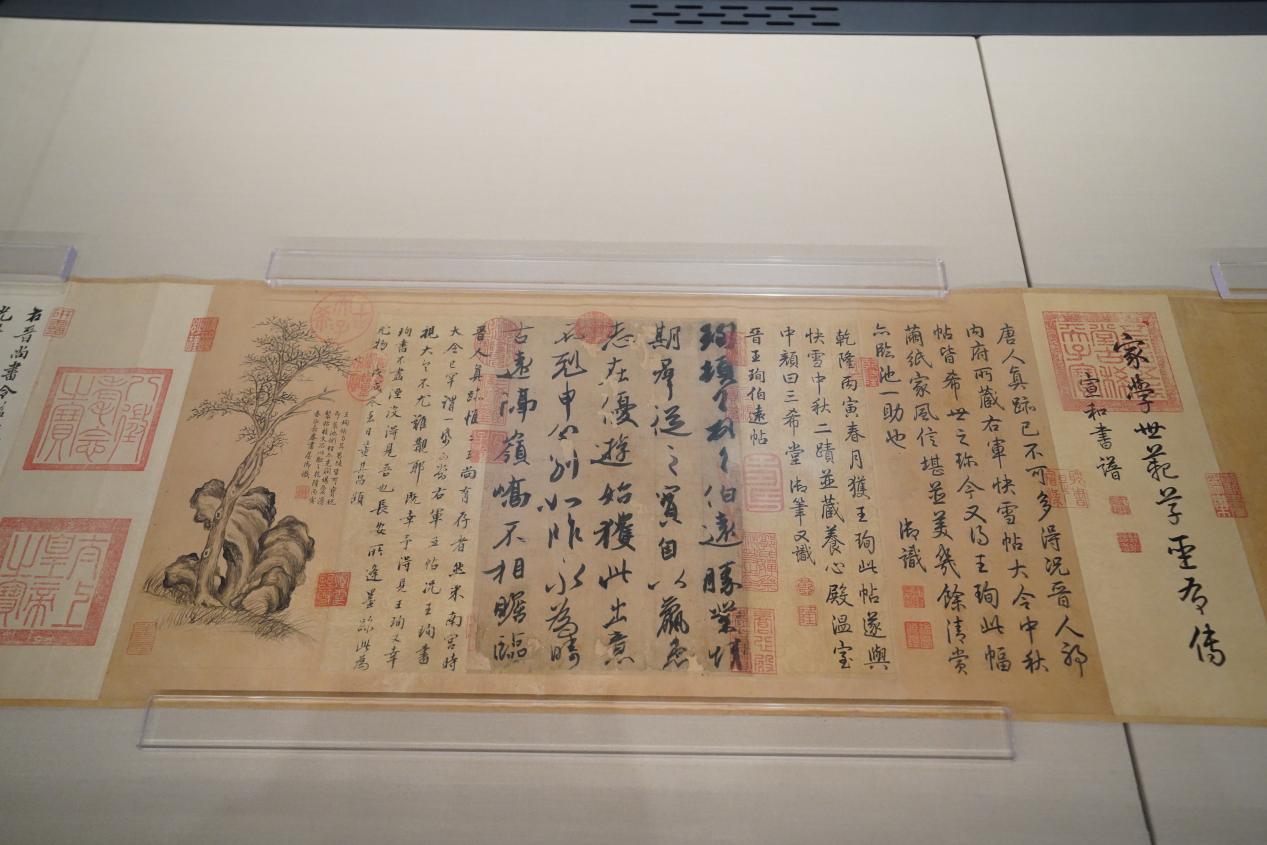 家學世範草聖有傳
宣和書譜
唐人真跡已不可多得況晉人耶
內府所藏右軍快雪帖大令中秋
帖皆希世之珍今又得王珣此幅
繭紙家風信堪並美幾餘清賞
亦臨池一助也
御識
乾隆丙寅春月獲王珣此帖遂與
快雪中秋二蹟並藏養心殿溫室
中顏曰三希堂御筆又識
晉王珣伯遠帖
珣頓首頓首伯遠勝業情
期群從之寶自以羸患
志在優遊始獲此出意
不剋申分別如昨永為疇
古遠隔嶺嶠不相瞻臨
晉人真跡惟二王尚有存者然米南宮時
大令已罕謂一紙可當右軍五帖況王珣書
視大令不尤難覯耶既幸予得見王珣又幸
珣書不盡湮沒得見吾也長安所逢墨跡此為
尤物戊戌冬至日董其昌題
八徵耄念之寶
太上皇帝之寶
右晉尚書令